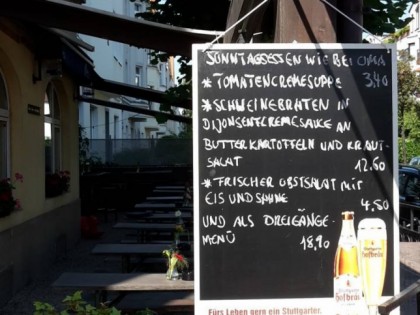 SONNTAGSESSEN WIE BEI OMA
* TOMATENCREMESUPPE 3,40
* SCHWEINEBRATEN IN
DIJONSENFCREMESAUCE AN
BUTTERKARTOFFELN UND KRAUT-
SALAT 12,60
* FRISCHER OBSTSALAT MIT
EIS UND SAHNE 4,50
UND ALS DREIGÄNGE-
MENÜ 18,90
Hofbräu
Hofbräu
Fürs Leben gern ein Stuttgarter.